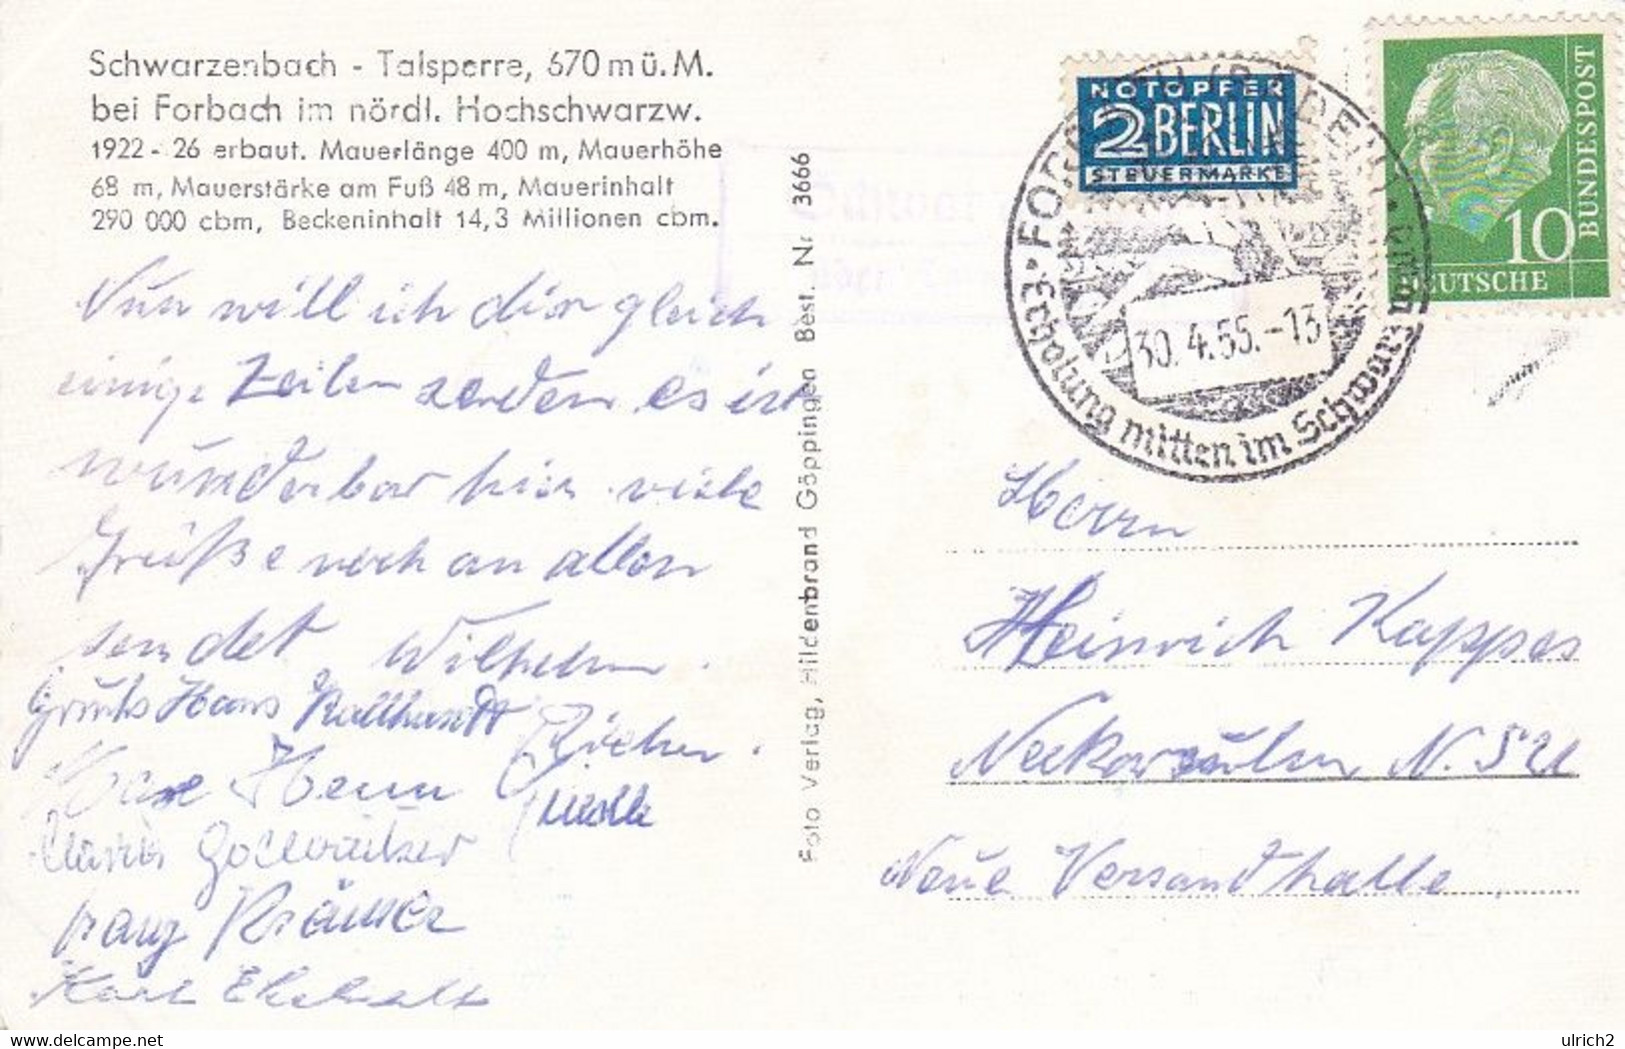 Schwarzenbach - Talsperre, 670 m ü. M.
bei Forbach im nördl. Hochschwarzw.
1922 - 26 erbaut. Mauerlänge 400 m, Mauerhöhe
68 m, Mauerstärke am Fuß 48 m, Mauerinhalt
290 000 cbm, Beckeninhalt 14,3 Millionen cbm.
Nun will ich dir gleich
einige Zeilen senden es ist
wunderbar hier viele
Grüße noch an allen
sendet Wilhelm.
Hans
Franz Krämer
Karl
Foto Verlag, Hildenbrand Göppingen Best. Nr 3666
NOTOPFER
2 BERLIN
STEUERMARKE
FORBACH (BADEN)
30. 4. 55. -13
Erholung mitten im Schwarz
10
DEUTSCHE
BUNDESPOST
Herrn
Heinrich Kappes
Neckarsulm N.S.U
Neue Versandhalle
delcampe.net
ulrich2